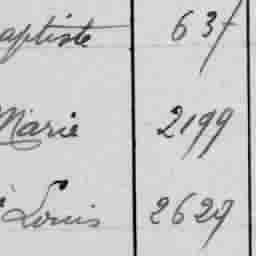 aptiste 637
Marie 2199
Louis 2629